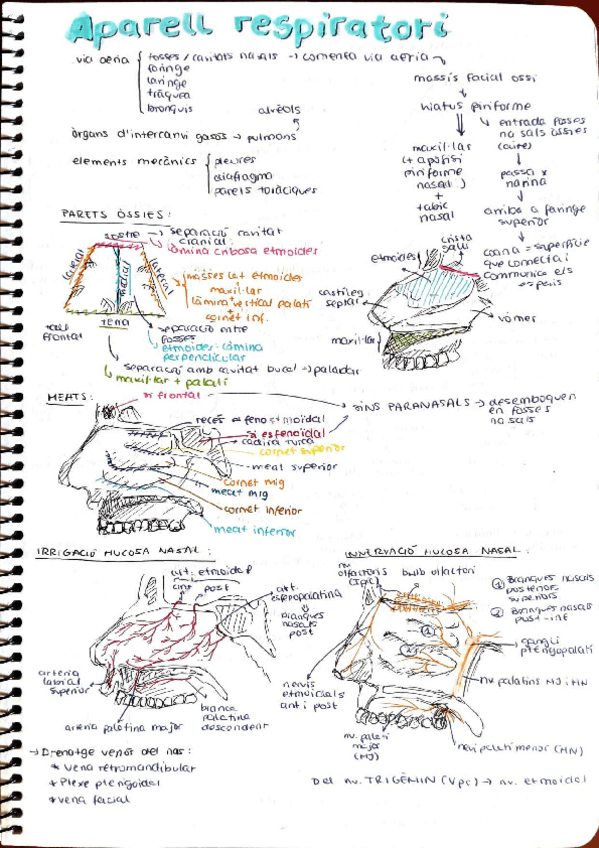 Aparell respiratori
via aeria
fosses / cavitats nasals → comença via aeria
faringe
laringe
tràquea
bronquis
alvèols
òrgans d'intercanvi gasos → pulmons
elements mecànics
pleures
diafragma
parets toràciques
massís facial ossi
hiatus piriforme
maxil·lar
(+ apòfisi
piriforme
nasal)
+
tabic
nasal
entrada fosses
nasals òssies
(aire)
passa x
narina
arriba a faringe
superior
coana = superfície
que connecta i
comunica els
espais
PARETS ÒSSIES:
sostre → separació cavitat
cranial
làmina cribosa etmoides
lateral
medial
lateral
masses lat etmoides
maxil·lar
làmina vertical palatí
+
cornet inf.
tall
frontal
terra
separació entre
fosses
etmoides: làmina
perpendicular
separació amb cavitat bucal → paladar
maxil·lar + palatí
etmoides
crista
galli
cartíleg
septal
maxil·lar
vómer
MEATS:
si frontal
SINS PARANASALS → desemboquen
en fosses
nasals
recés esfenoetmoïdal
si esfenoidal
cadira turca
cornet superior
meat superior
cornet mig
meat mig
cornet inferior
meat inferior
IRRIGACIÓ MUCOSA NASAL:
art. etmoidal
ant
post
art.
esfenopalatina
branques
nasals
post
artèria
labial
superior
artèria palatina major
branca
palatina
descendent
→ Drenatge venós del nas:
* vena retromandibular
* Plexe pterigoidal
* vena facial
INNERVACIÓ MUCOSA NASAL:
nv
olfactoris
(Ipc)
bulb olfactori
① Branques nasals
posteriors
superiors
② Branques nasals
post-inf
①
②
gangli
pterigopalatí
nv palatins MJ i MN
nervis
etmoidals
ant i post
nv. palatí
major
(MJ)
nervi palatí menor (MN)
Del nv. TRIGÈMIN (Vpc) → nv. etmoidal